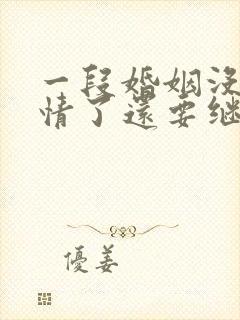 一段婚姻沒
情了還要继
優姜